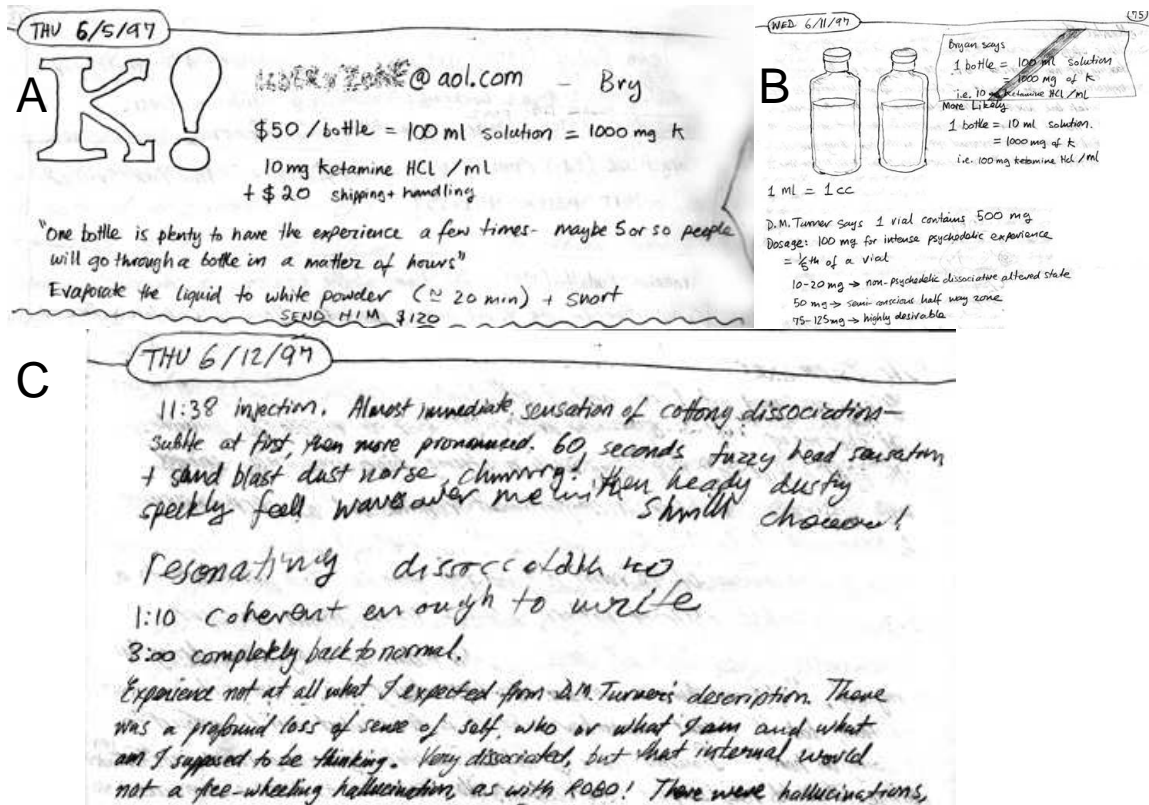 A
THU 6/5/97
K!
@aol.com – Bry
$50 / bottle = 100 ml solution = 1000 mg K
10 mg Ketamine HCl / ml
+ $20 shipping + handling
"One bottle is plenty to have the experience a few times – maybe 5 or so people
will go through a bottle in a matter of hours"
Evaporate the liquid to white powder (≃ 20 min) + snort
SEND HIM $120
B
WED 6/11/97
75
Bryan says
1 bottle = 100 ml solution
= 1000 mg of K
i.e. 10 mg Ketamine HCl / ml
More Likely
1 bottle = 10 ml solution.
= 1000 mg of K
i.e. 100 mg Ketamine Hcl / ml
1 ml = 1 cc
D.M. Turner says 1 vial contains 500 mg
Dosage: 100 mg for intense psychedelic experience
= 1/5th of a vial
10-20 mg → non-psychedelic dissociative altered state
50 mg → semi-conscious half way zone
75-125 mg → highly desirable
C
THU 6/12/97
11:38 injection. Almost immediate sensation of cottony dissociation –
subtle at first, then more pronounced. 60 seconds fuzzy head sensation
+ sand blast dust noise, then heady dusty
speckly feell waves over me with
resonating
1:10 coherent enough to write
3:00 completely back to normal.
Experience not at all what I expected from D.M. Turner's description. There
was a profound loss of sense of self, who or what I am and what
am I supposed to be thinking. Very dissociated, but that internal world
not a free-wheeling hallucination as with ROBO! There were hallucinations,